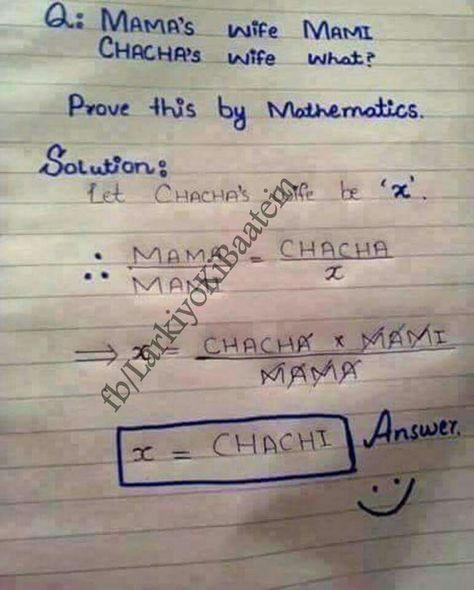 Q: MAMA'S wife MAMI
CHACHA'S wife what?
Prove this by Mathematics.
Solution:
Let CHACHA'S wife be 'x'.
∴ MAMA / MAMI = CHACHA / x
⇒ x = CHACHA x MAMI / MAMA
x = CHACHI Answer.
fb/LarkiyoKiBaatein